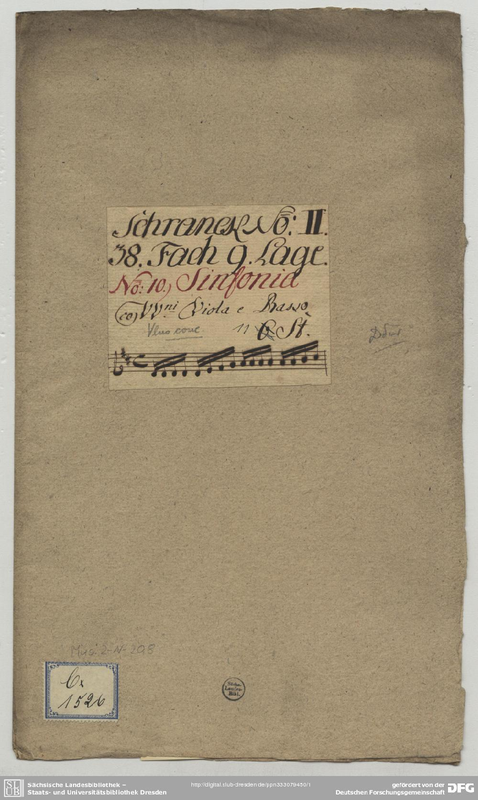 Schranck No: II.
38. Fach 9. Lage.
No: 10.) Sinfonia
co VVni Viola e Basso
11 6 St.
Cx
1526
Sächs.
Landes-
Bibl.
SLUB
Sächsische Landesbibliothek –
Staats- und Universitätsbibliothek Dresden
http://digital.slub-dresden.de/ppn333079450/1
gefördert von der
Deutschen Forschungsgemeinschaft
DFG